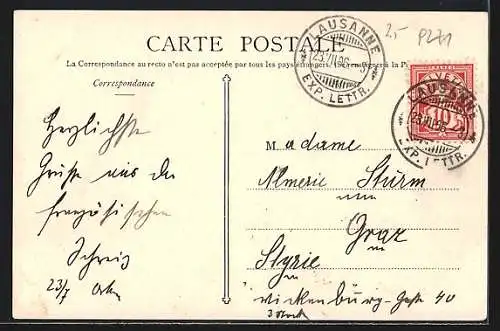 2,-
P271
CARTE POSTALE
La Correspondance au recto n'est pas acceptée par tous les pays étrangers. (Se renseigner à la P
Correspondance
LAUSANNE
EXP. LETTR.
LAUSANNE
EXP. LETTR.
10
Herzlichste
Grüße aus der
französischen
Schweiz
23/7
Madame
Almerie Sturm
Graz
Styrie
Wickenburg-Gasse 40
3 Stock